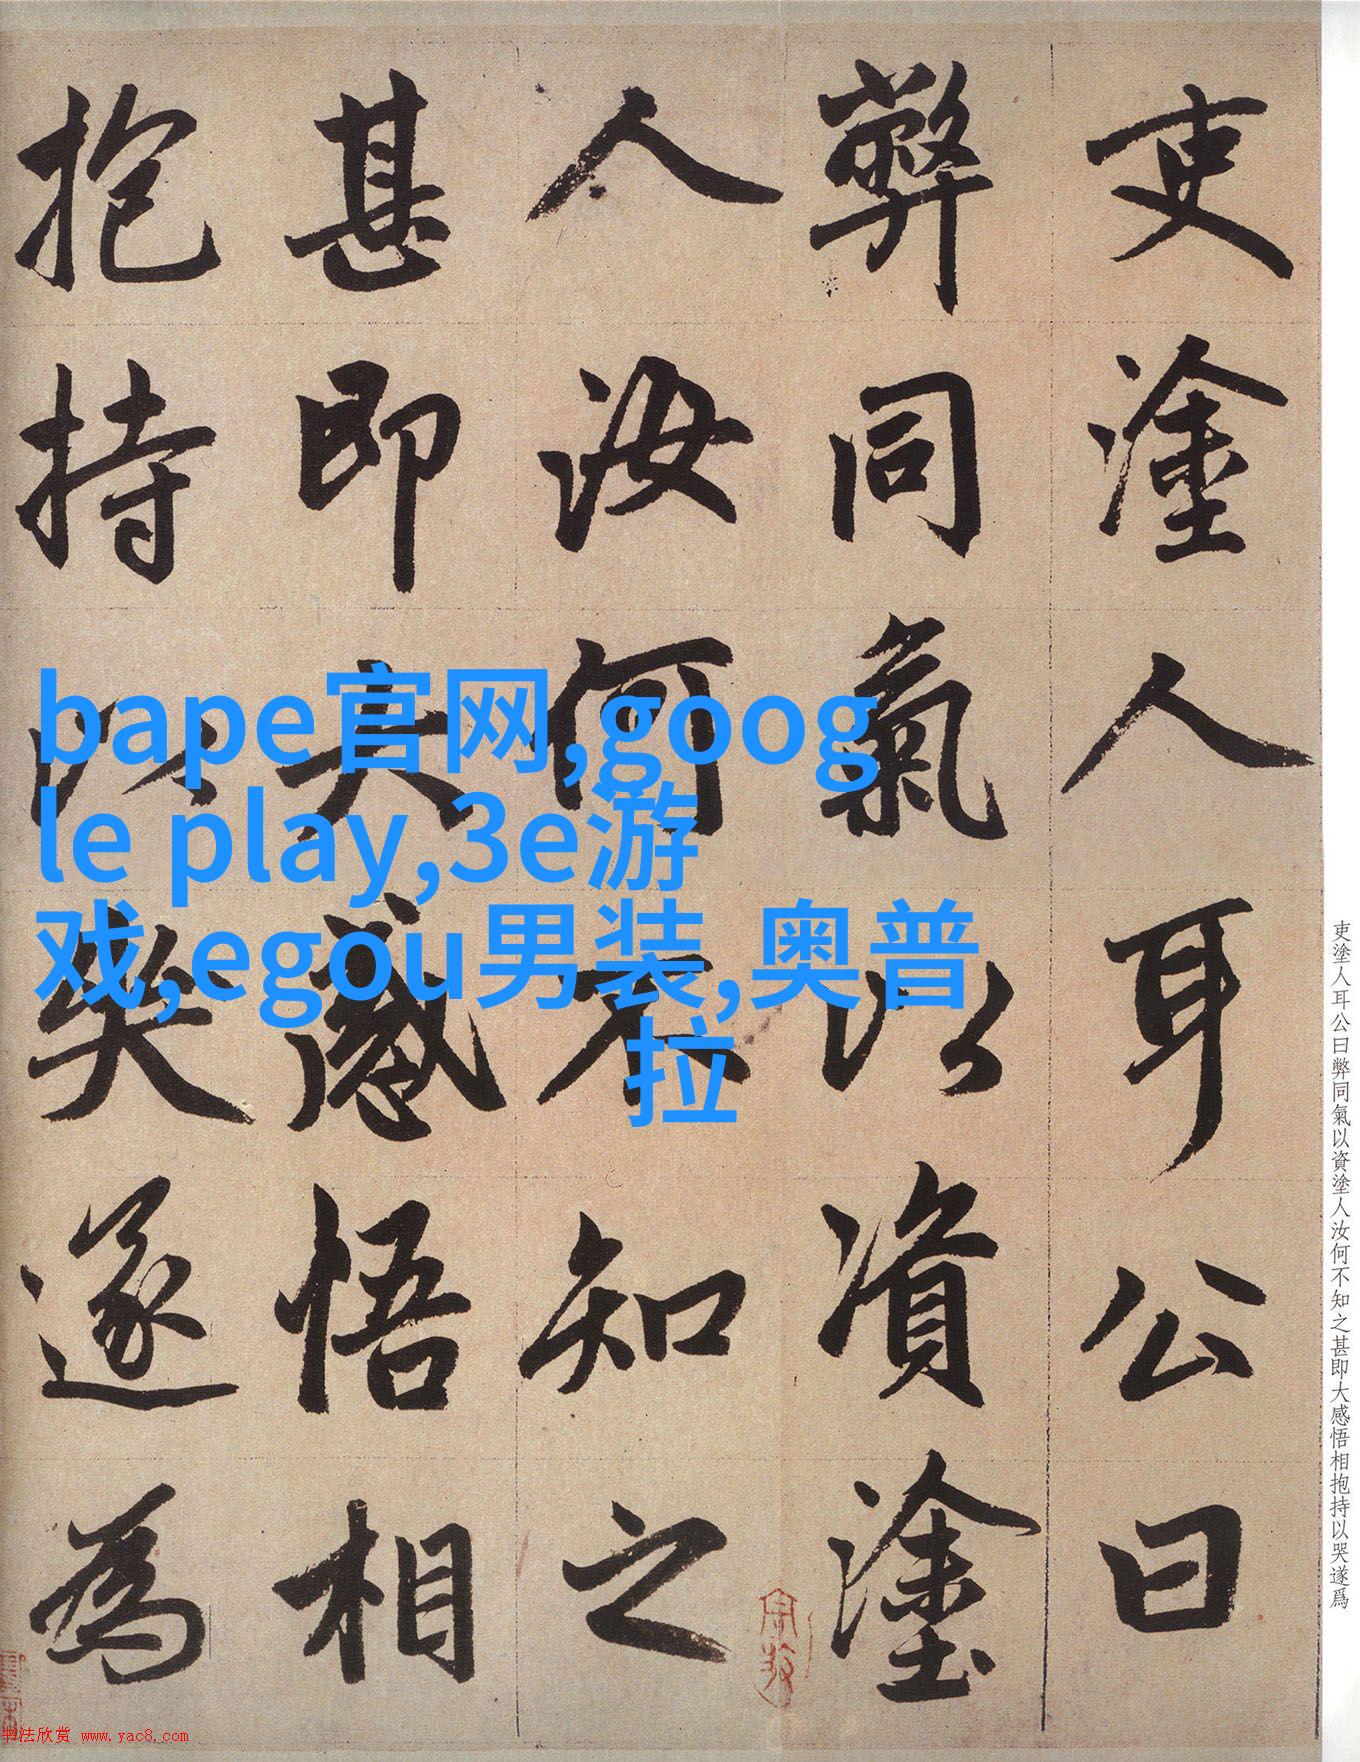 吏塗人耳公曰
弊同氣以資塗
人汝何不知之
甚即大感悟相
抱持以哭遂為
bape官网,goog
le play,3e游
戏,egou男装,奥普
拉
吏塗人耳公曰弊同氣以資塗人汝何不知之甚即大感悟相抱持以哭遂爲
书法欣赏 www.yac8.com